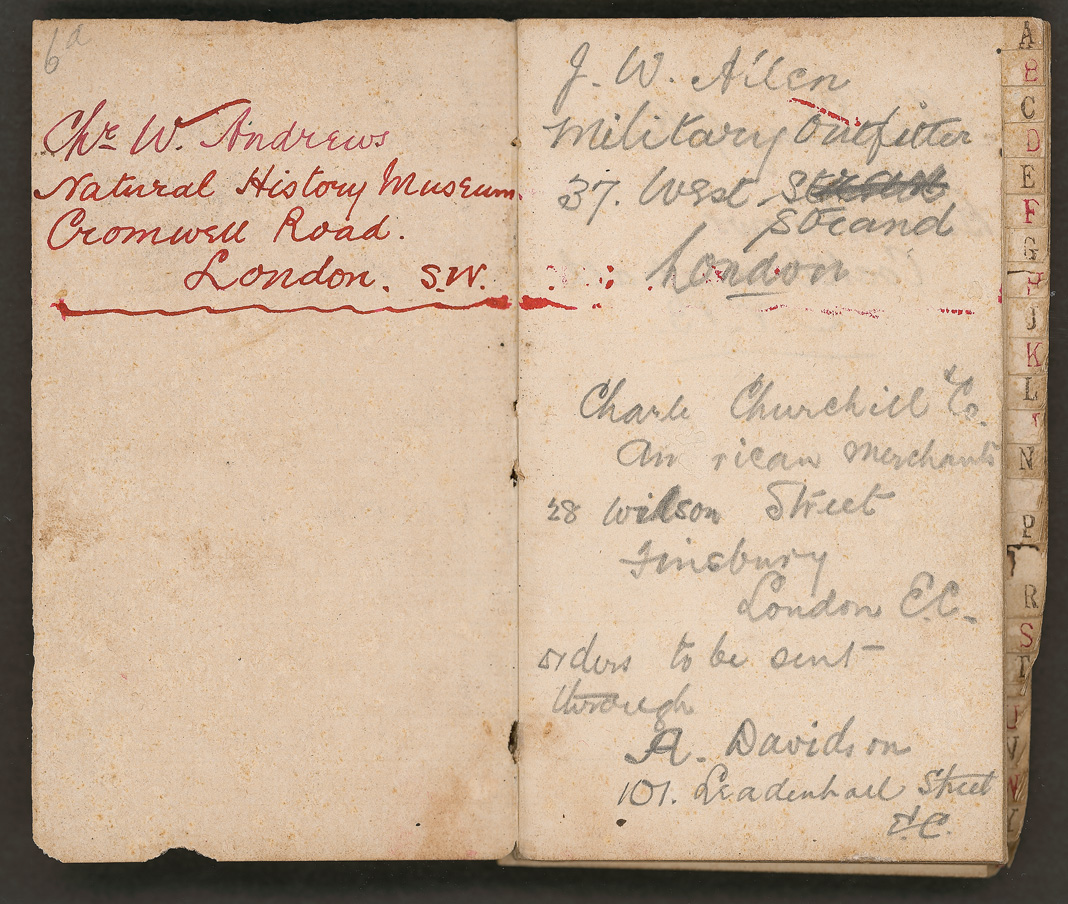 6a
Chs W. Andrews
Natural History Museum.
Cromwell Road.
London. S.W.
J. W. Allen
Military Outfitter
37. West Strand
Strand
London
Charls Churchill & Co.
American Merchants
28 Wilson Street
Finsbury
London E.C.
orders to be sent
through
A. Davidson
101. Leadenhall Street
E.C.
A
B
C
D
E
F
G
H
J
K
L
N
P
R
S
T
U
V
W
Y